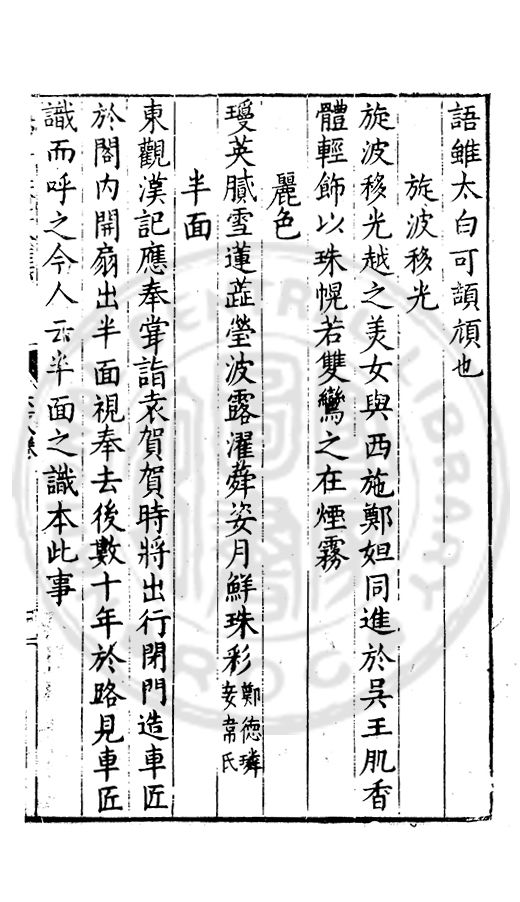 語雖太白可頡頏也
旋波移光
旋波移光越之美女與西施鄭妲同進於吳王肌香
體輕飾以珠幌若雙鸞之在煙霧
麗色
瓊英膩雪蓮蕋瑩波露濯蕣姿月鮮珠彩鄭德璘妾韋氏
半面
東觀漢記應奉嘗詣袁賀賀時將出行閉門造車匠
於閤內開扇出半面視奉去後數十年於路見車匠
識而呼之今人云半面之識本此事